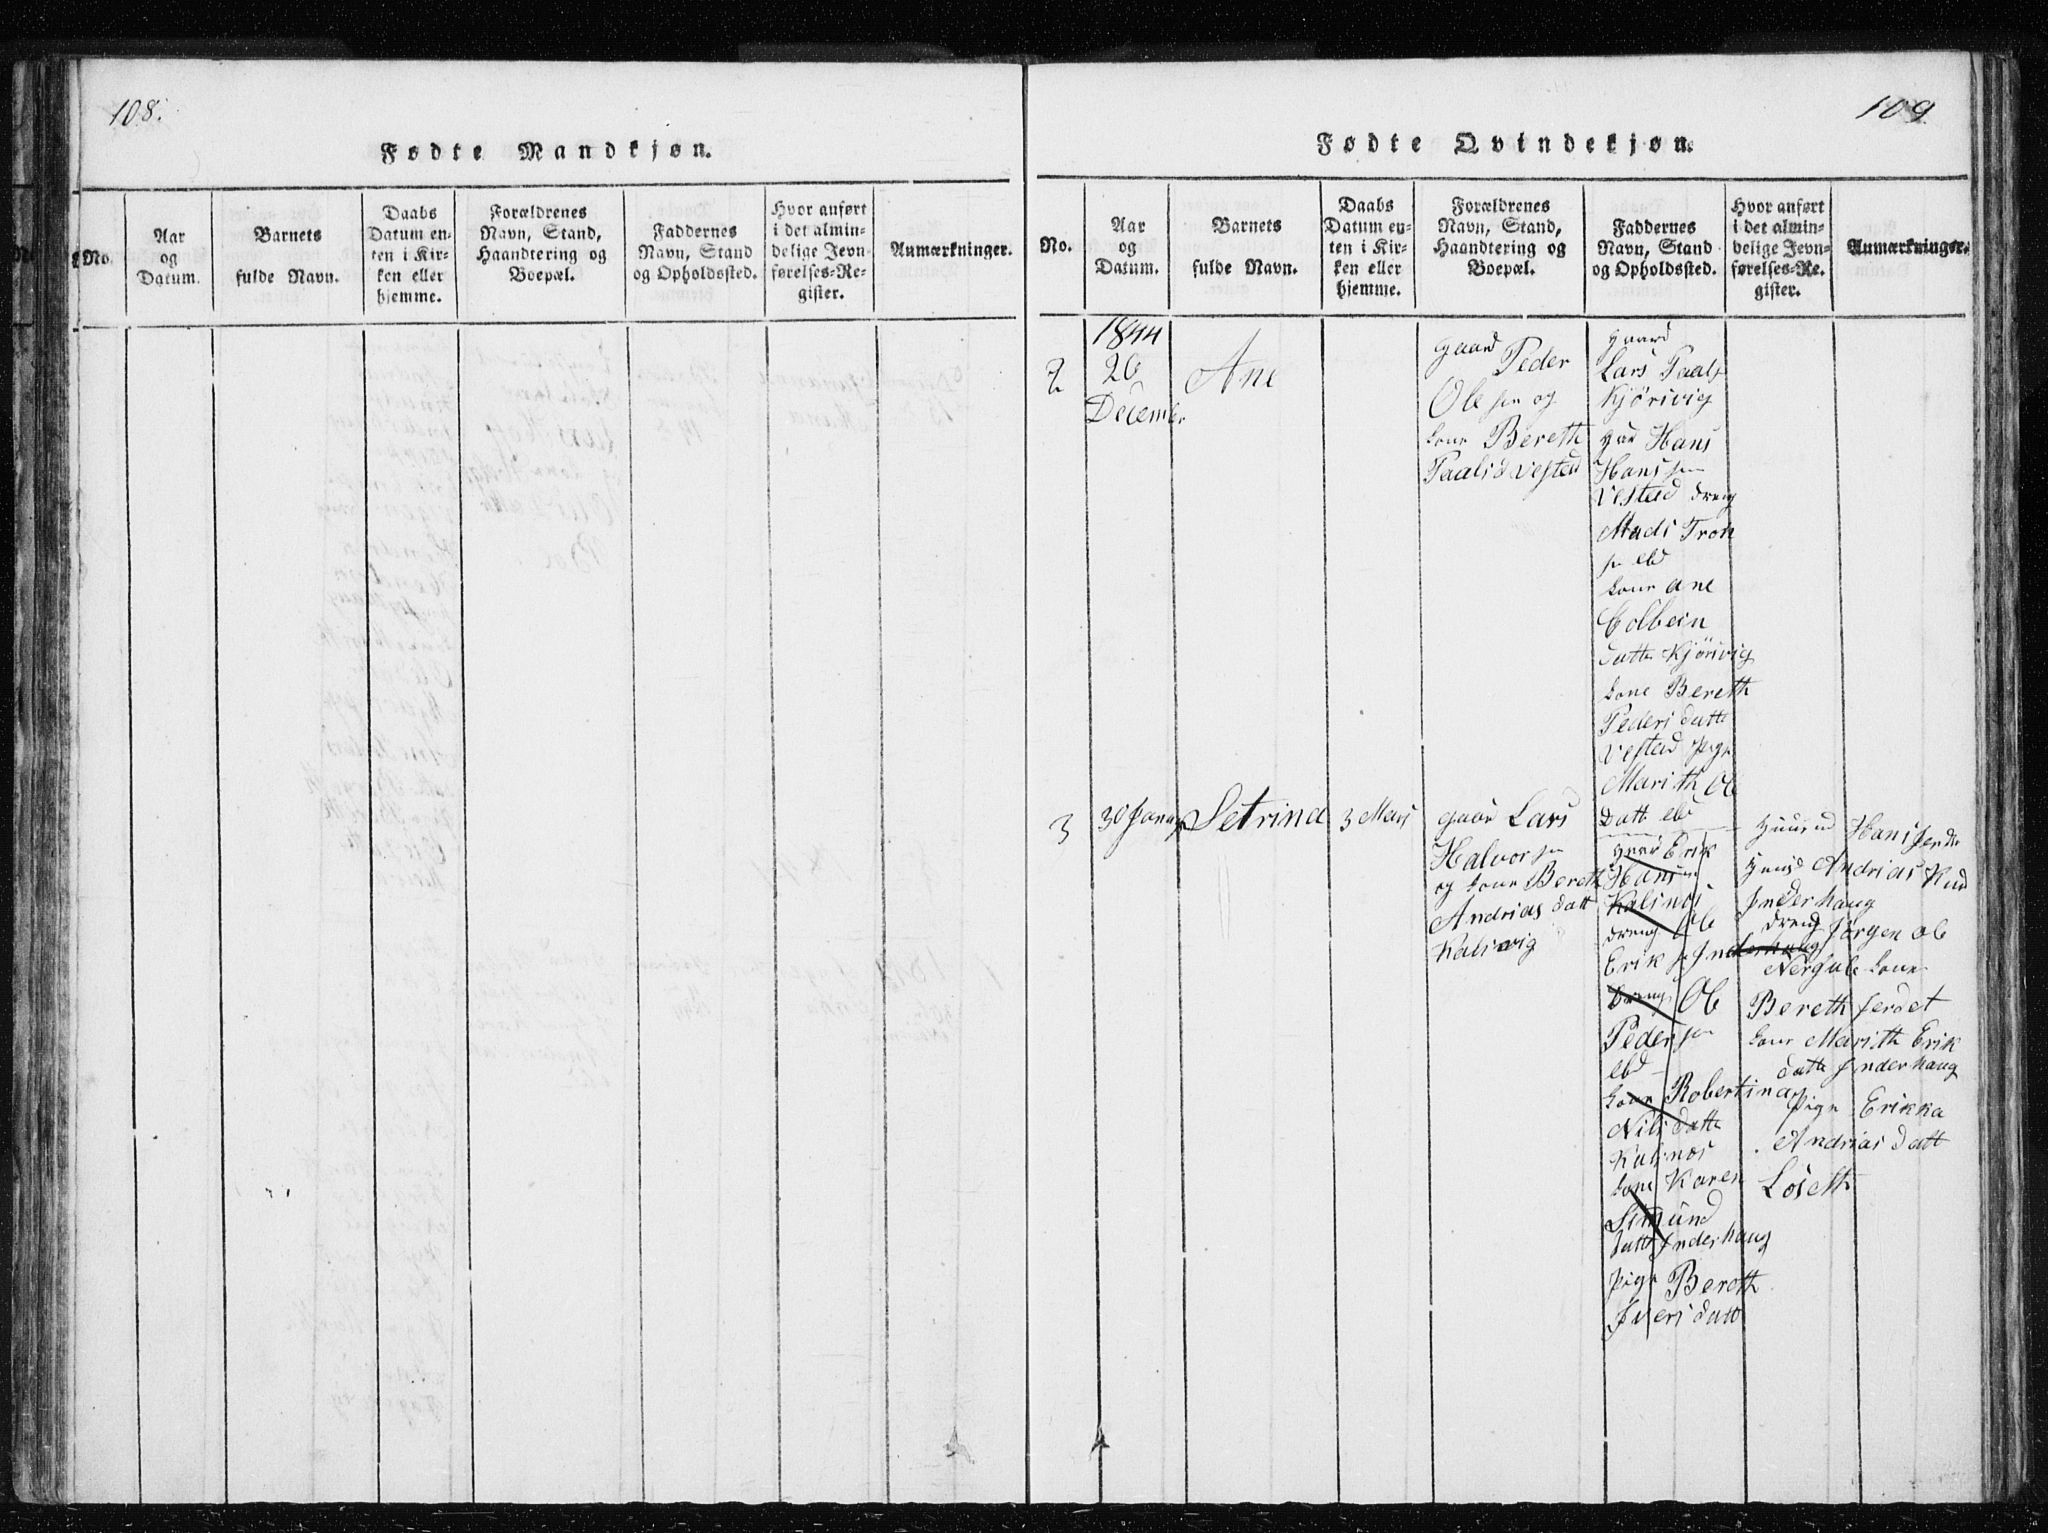 108.
Fødte Mandkjøn.
No.
Aar
og
Datum.
Barnets
fulde Navn.
Daabs
Datum en-
ten i Kir-
ken eller
hjemme.
Forældrenes
Navn, Stand,
Haandtering og
Boepæl.
Faddernes
Navn, Stand
og Opholdssted.
Hvor anført
i det almin-
delige Jevn-
førelses-Re-
gister.
Anmærkninger.
109
Fødte Qvindekjøn.
No.
Aar
og
Datum.
Barnets
fulde Navn.
Daabs
Datum en-
ten i Kir-
ken eller
hjemme.
Forældrenes
Navn, Stand,
Haandtering og
Boepæl.
Faddernes
Navn, Stand
og Opholdssted.
Hvor anført
i det almin-
delige Jevn-
førelses-Re-
gister.
Anmærkninger.
2
1844
26
December
Ane
gaard
Peder
Ole sen og
kone Bereth
Paals d Vestad
gaard
Lars Paals
Kjörivig
Hans
Hans sen
Vestad dreng
Mads Tron
sen ebd
kone ane
Colbein
datte Kjörivig
kone Bereth
Peders datte
Vestad pige
Marith Ole
Datt ebd
3
30 Janua
Setrina
3 Mars
gaar Lars
Halvor sen
og kone Bereth
Andrias datt
Kalsvig
Erik
Hans
Kalsnos
dreng Ole
Erik s Inderhaug
dreng Ole
Peder sen
ebd
kone Robertina
Nils datte
Kalsnos
kone Karen
Simund
datte Inderhaug
pige Bereth
Ivers datt
Hans
Andrias Knd
Inderhaug
dreng Jørgen Ole
kone
Bereth
kone Marith Erik
datte Inderhaug
Pige Erikka
Andrias datt
Löseth